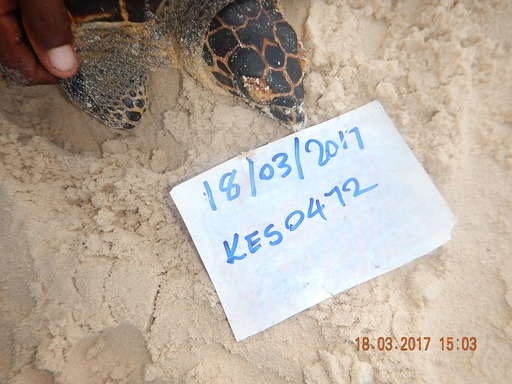 18/03/2017
KES0472
18.03.2017 15:03